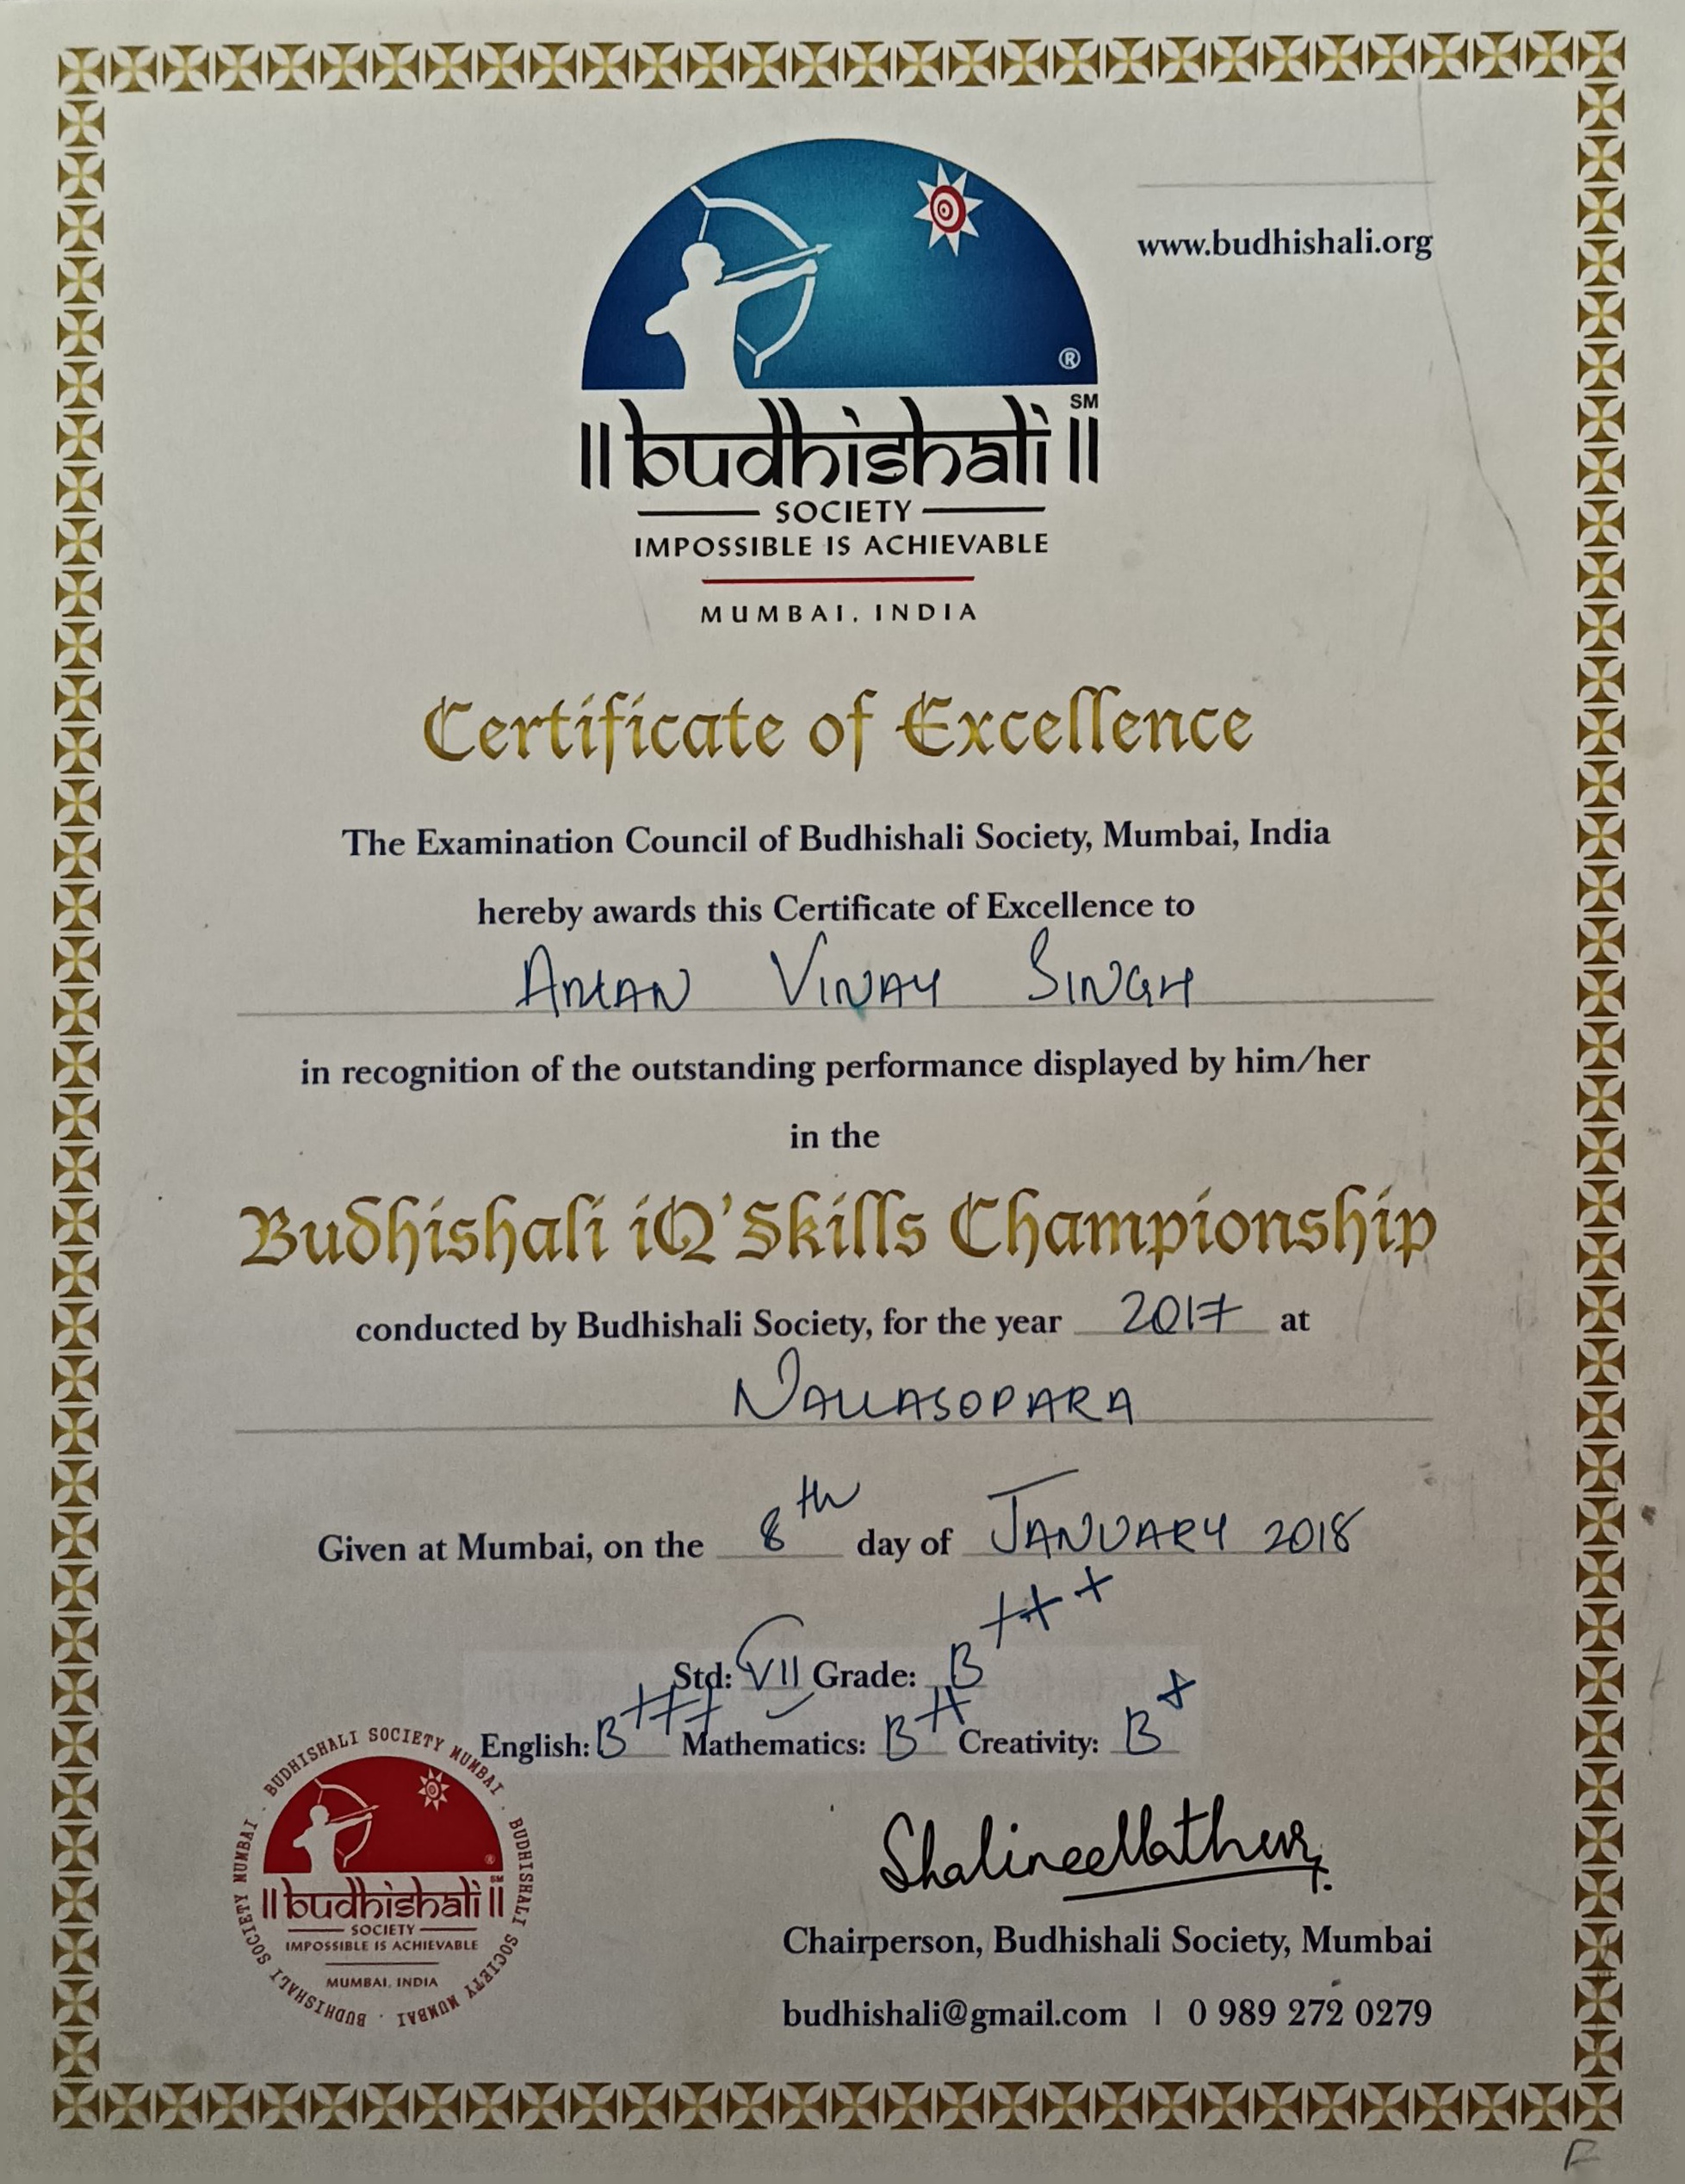 www.budhishali.org
®
SM
||budhishali||
SOCIETY
IMPOSSIBLE IS ACHIEVABLE
MUMBAI, INDIA
Certificate of Excellence
The Examination Council of Budhishali Society, Mumbai, India
hereby awards this Certificate of Excellence to
AMAN VINAY SINGH
in recognition of the outstanding performance displayed by him/her
in the
Budhishali iQ'Skills Championship
conducted by Budhishali Society, for the year 2017 at
NALLASOPARA
Given at Mumbai, on the 8th day of JANUARY 2018
Std: VII Grade: B+++
English: B+++ Mathematics: B++ Creativity: B+
BUDHISHALI SOCIETY MUMBAI . BUDHISHALI SOCIETY MUMBAI . BUDHISHALI SOCIETY MUMBAI .
®
SM
||budhishali||
SOCIETY
IMPOSSIBLE IS ACHIEVABLE
MUMBAI, INDIA
Shalinee Mathur
Chairperson, Budhishali Society, Mumbai
budhishali@gmail.com | 0 989 272 0279